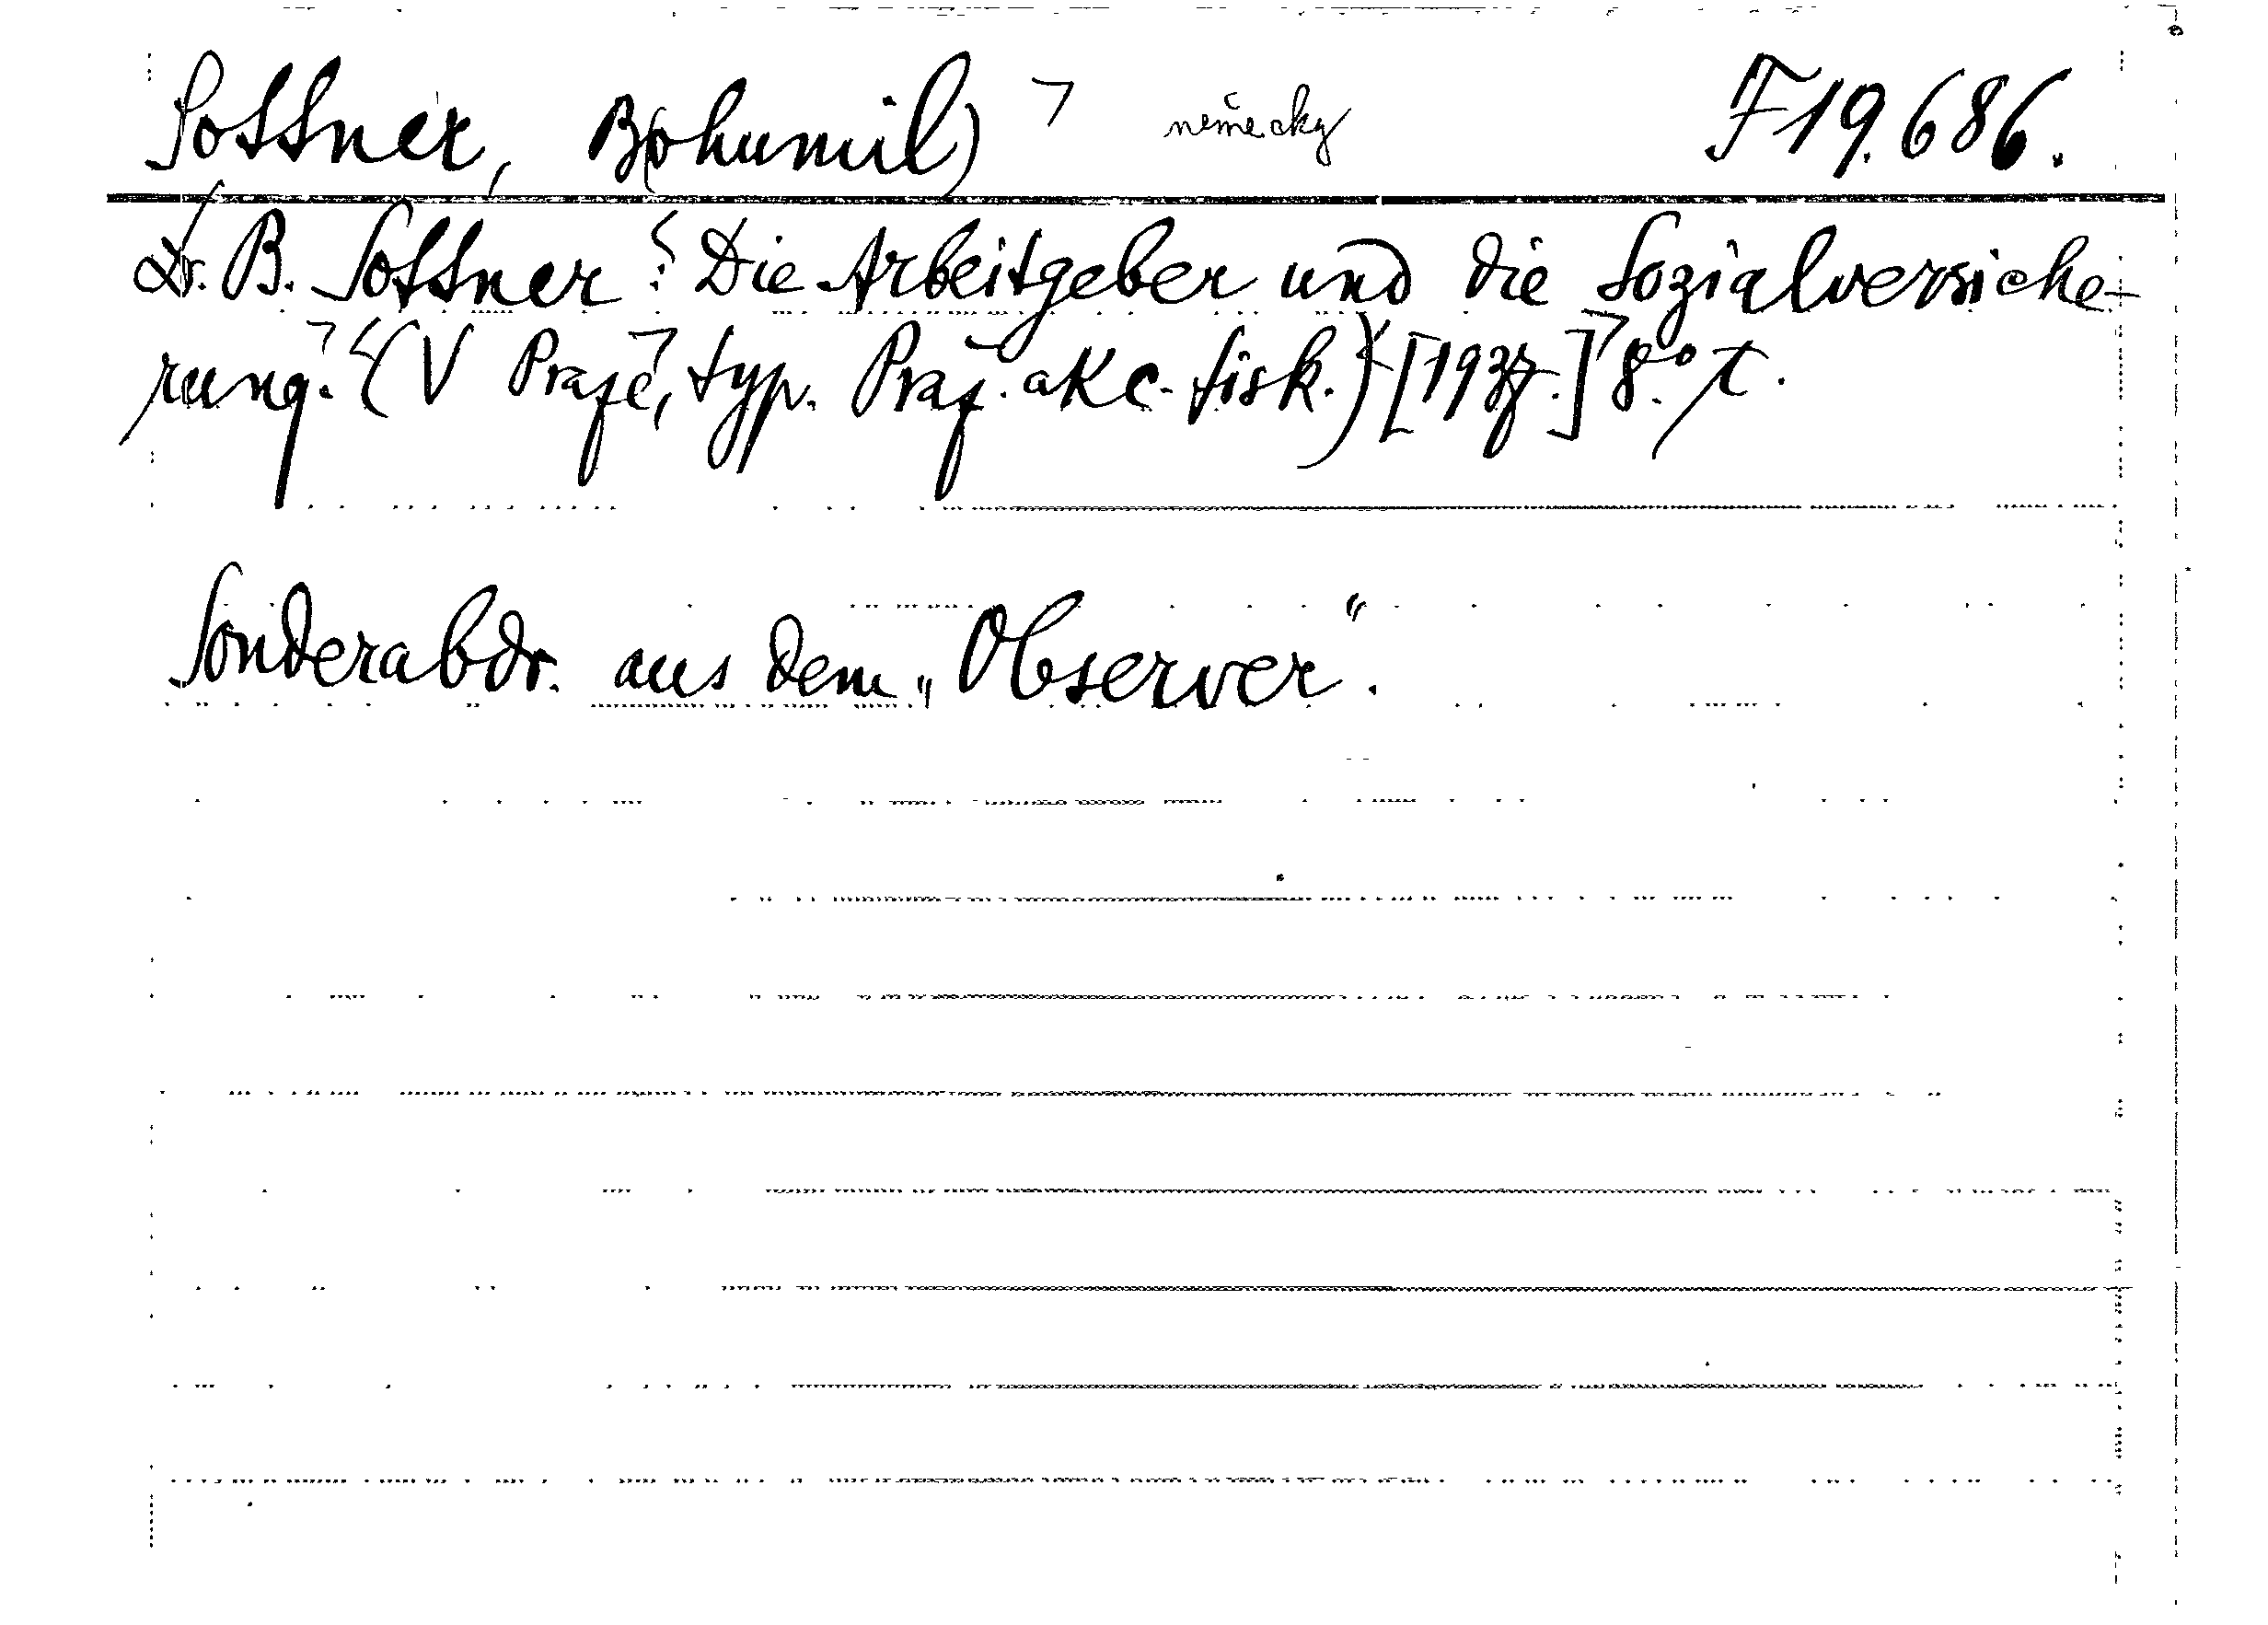 Sottner, B(ohumil) německy F 19.686.
Dr. B. Sottner: Die Arbeitgeber und die Sozialversiche-
rung. (V Praze, typ. Praž. akc. tisk.) [1937.] 8.° T.
Sonderabdr. aus dem „Observer“.